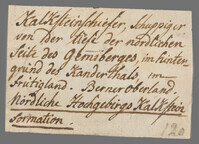 Kalksteinschiefer, schuppiger
von der Tiefe der nördlichen
Seite des Gemsberges, im Hinter-
grund des Kanderthals, im
Frütigland. Berner Oberland.
Nördliche Hochgebirgs Kalkstein
Formation.
120